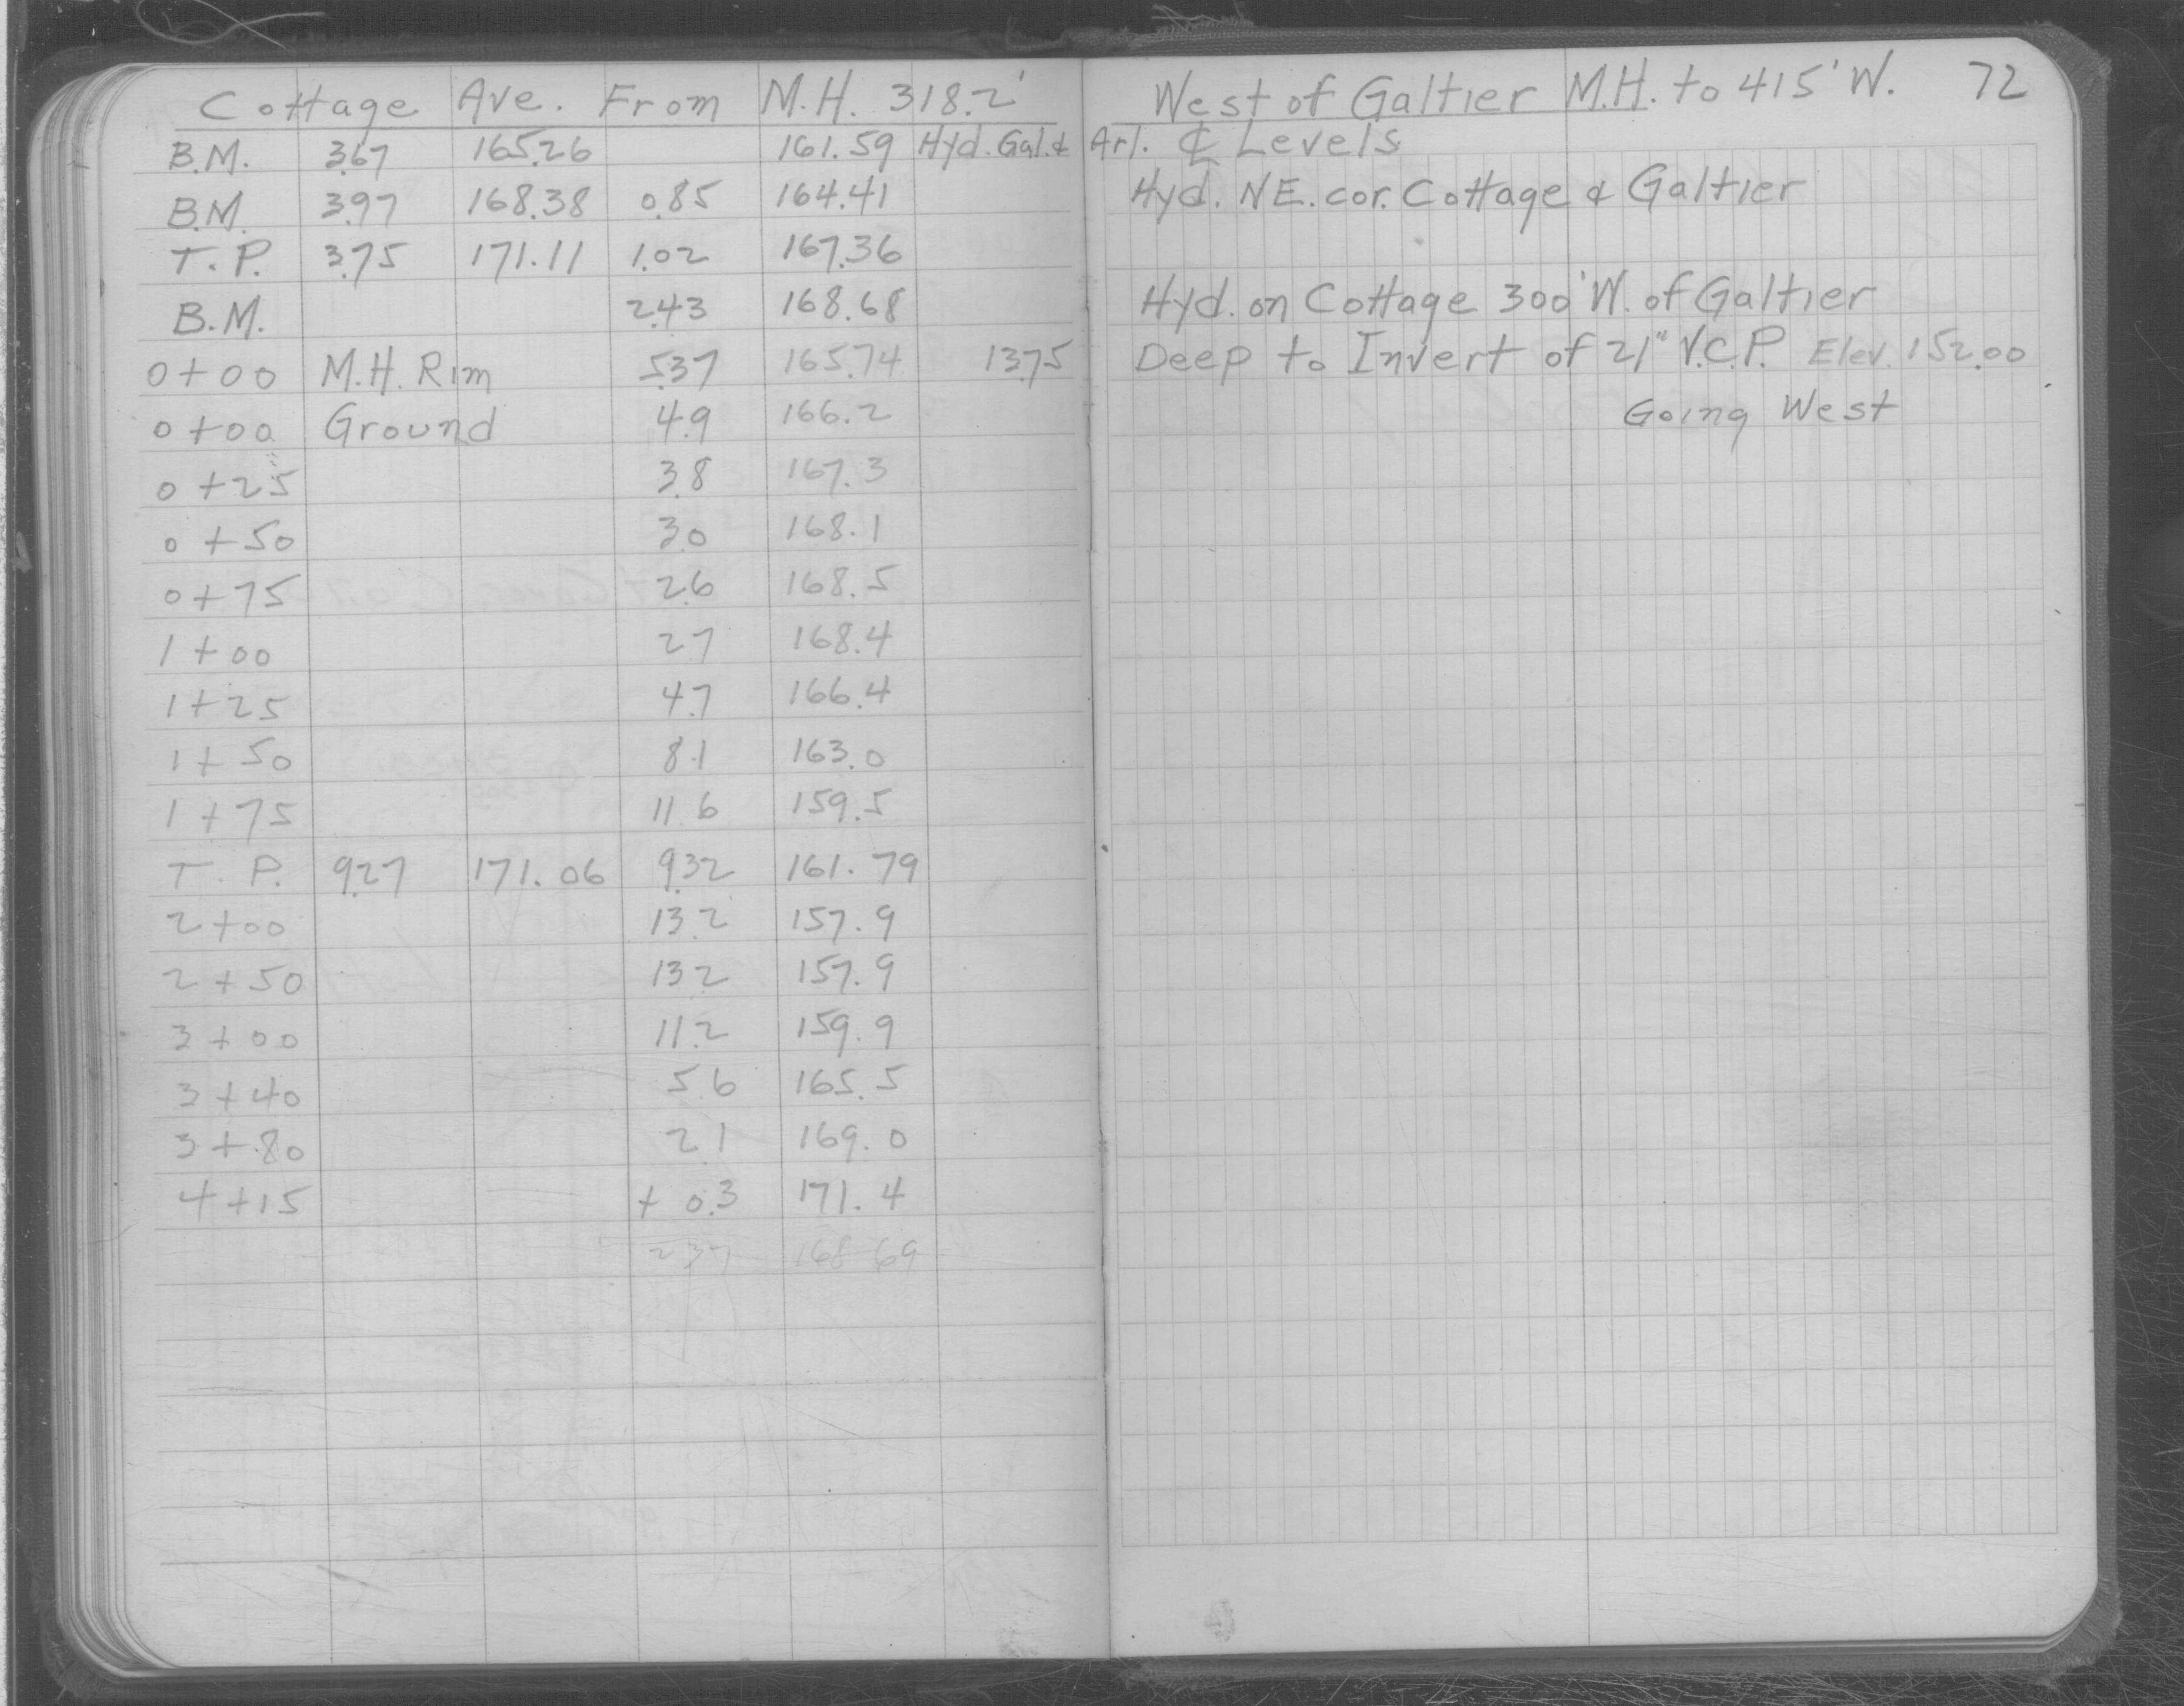 Cottage Ave. From M.H. 318.2' West of Galtier M.H. to 415' W. 72
B.M. 3.67 165.26 161.59 Hyd. Gal. & Arl. ℄ Levels
B.M. 3.97 168.38 0.85 164.41 Hyd. NE. cor. Cottage & Galtier
T.P. 3.75 171.11 1.02 167.36
B.M. 2.43 168.68 Hyd. on Cottage 300' W. of Galtier
0+00 M.H. Rim 5.37 165.74 13.75 Deep to Invert of 21" V.C.P. Elev. 152.00
0+00 Ground 4.9 166.2 Going West
0+25 3.8 167.3
0+50 3.0 168.1
0+75 2.6 168.5
1+00 2.7 168.4
1+25 4.7 166.4
1+50 8.1 163.0
1+75 11.6 159.5
T.P. 9.27 171.06 9.32 161.79
2+00 13.2 157.9
2+50 13.2 157.9
3+00 11.2 159.9
3+40 5.6 165.5
3+80 2.1 169.0
4+15 +0.3 171.4
2.37 168.69